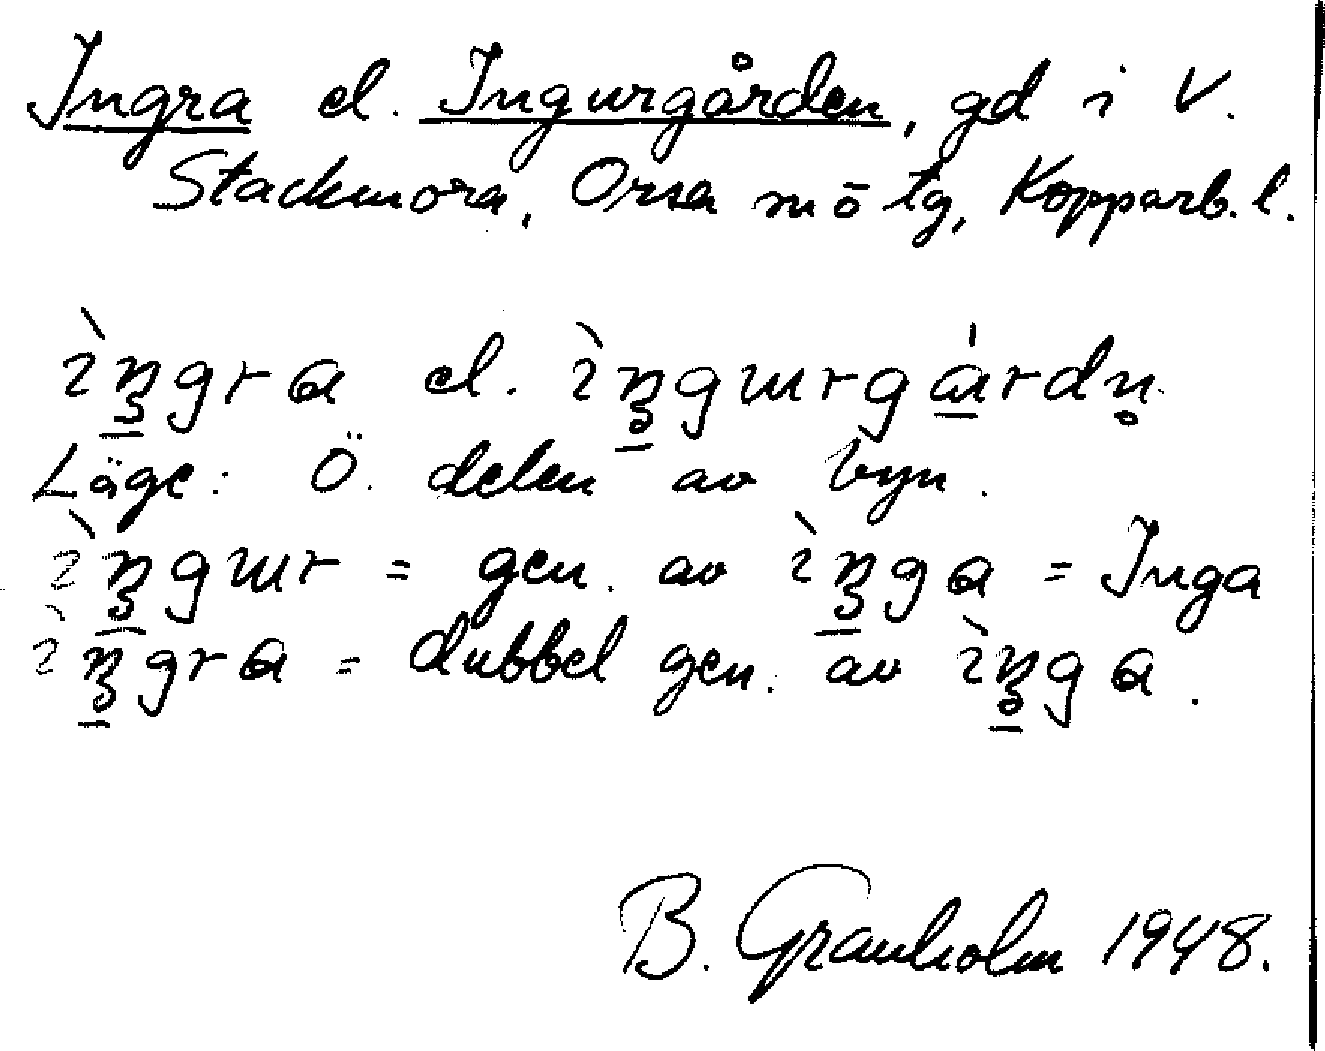 Ingra el. Ingurgården, gd i V.
Stackmora, Orsa sn o tg, Kopparb. l.
ìŋgra el. ìŋgɯrgárdn̥
Läge: Ö. delen av byn.
ìŋgɯr = gen. av ìŋga = Inga
ìŋgra = dubbel gen. av ìŋga.
B. Granholm 1948.